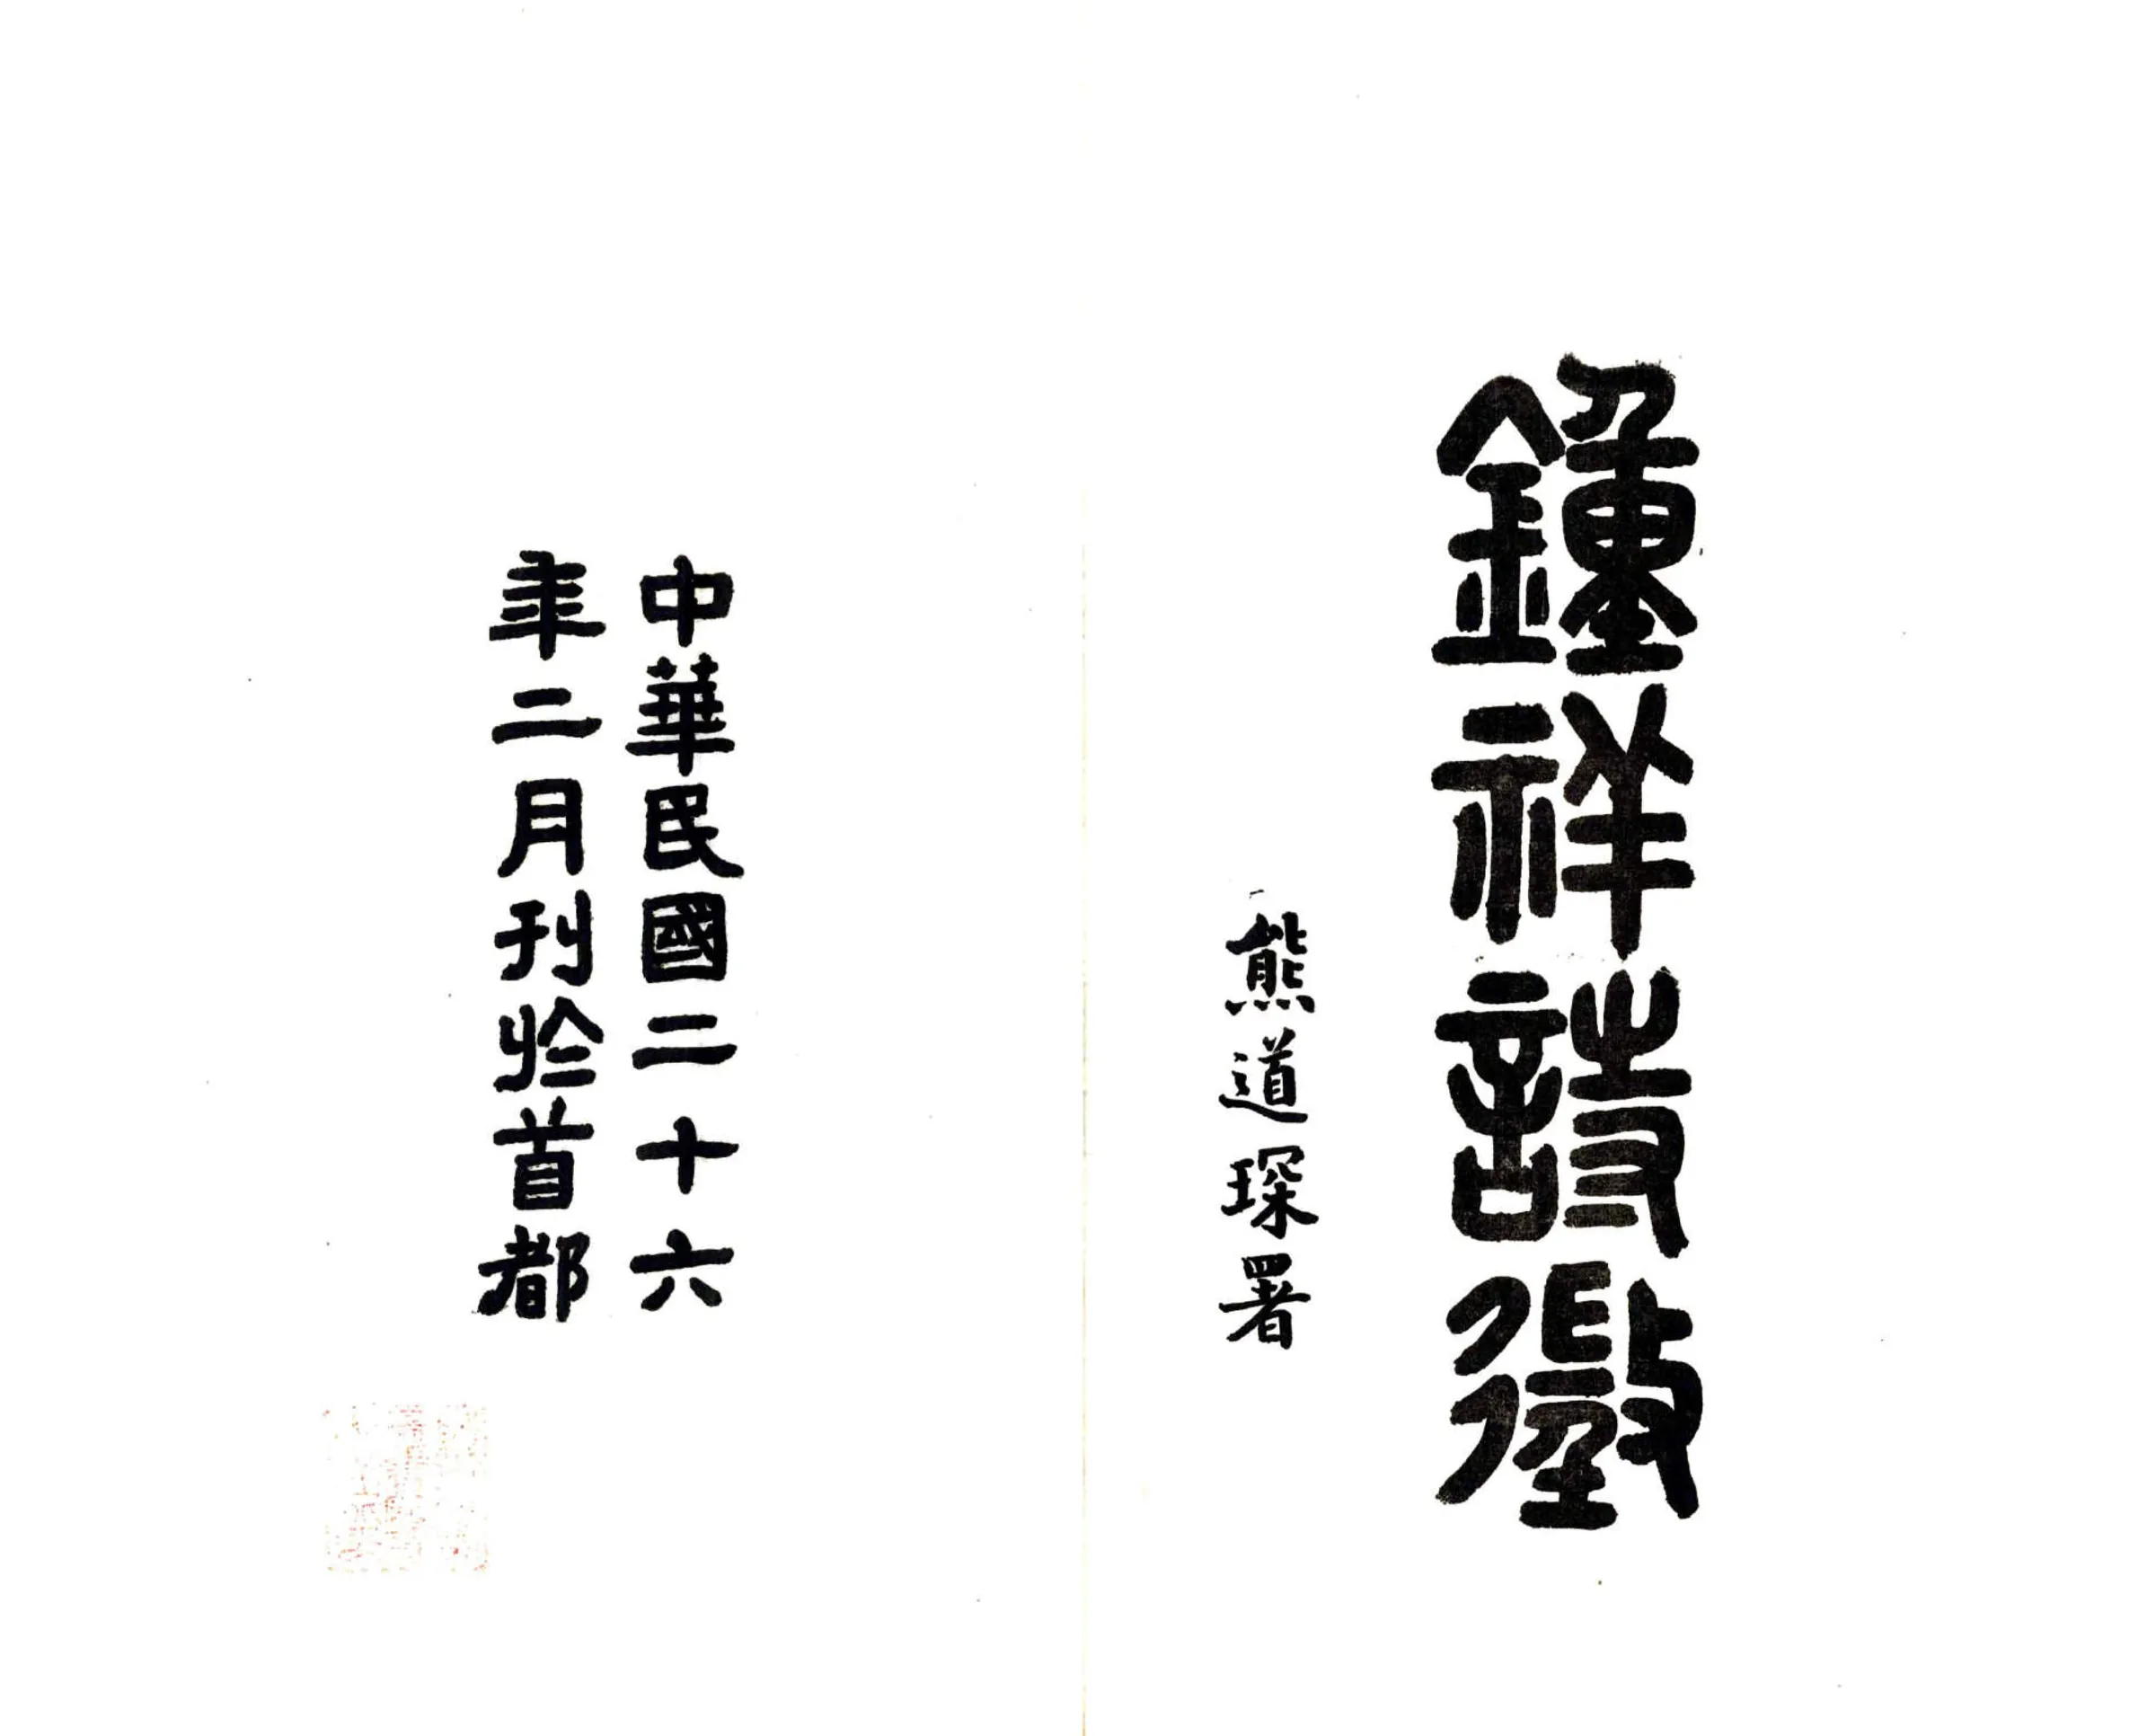 鍾祥詩徵
熊道琛署
中華民國二十六
年二月刊於首都